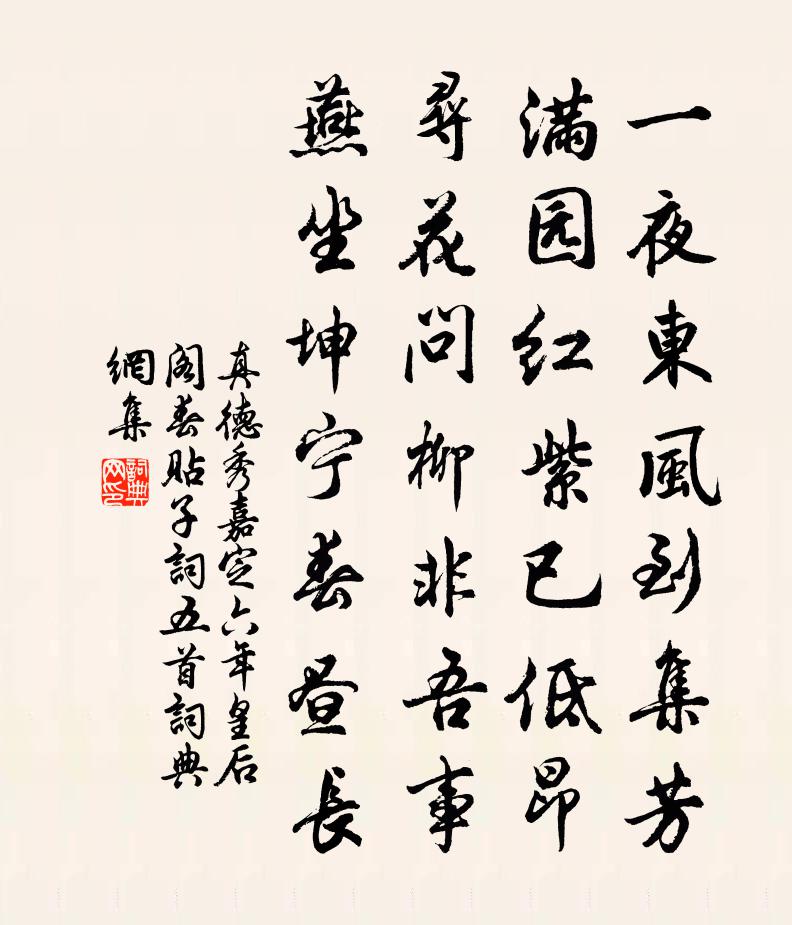 一夜東風到集芳
滿园红紫已低昂
尋花問柳非吾事
燕坐坤宁春昼長
真德秀嘉定六年皇后
閣春貼子詞五首詞典
網集
詞典
网印